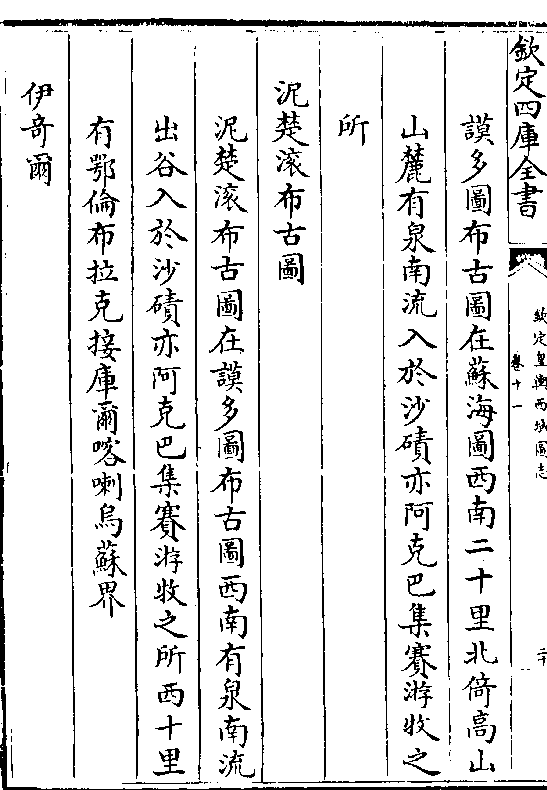 欽定四庫全書
欽定皇輿西域圖志
卷十一
二十
謨多圖布古圖在蘇海圖西南二十里北倚高山
山麓有泉南流入於沙磧亦阿克巴集賽游牧之
所
泥楚滾布古圖
泥楚滾布古圖在謨多圖布古圖西南有泉南流
出谷入於沙磧亦阿克巴集賽游牧之所西十里
有鄂倫布拉克接庫爾喀喇烏蘇界
伊奇爾